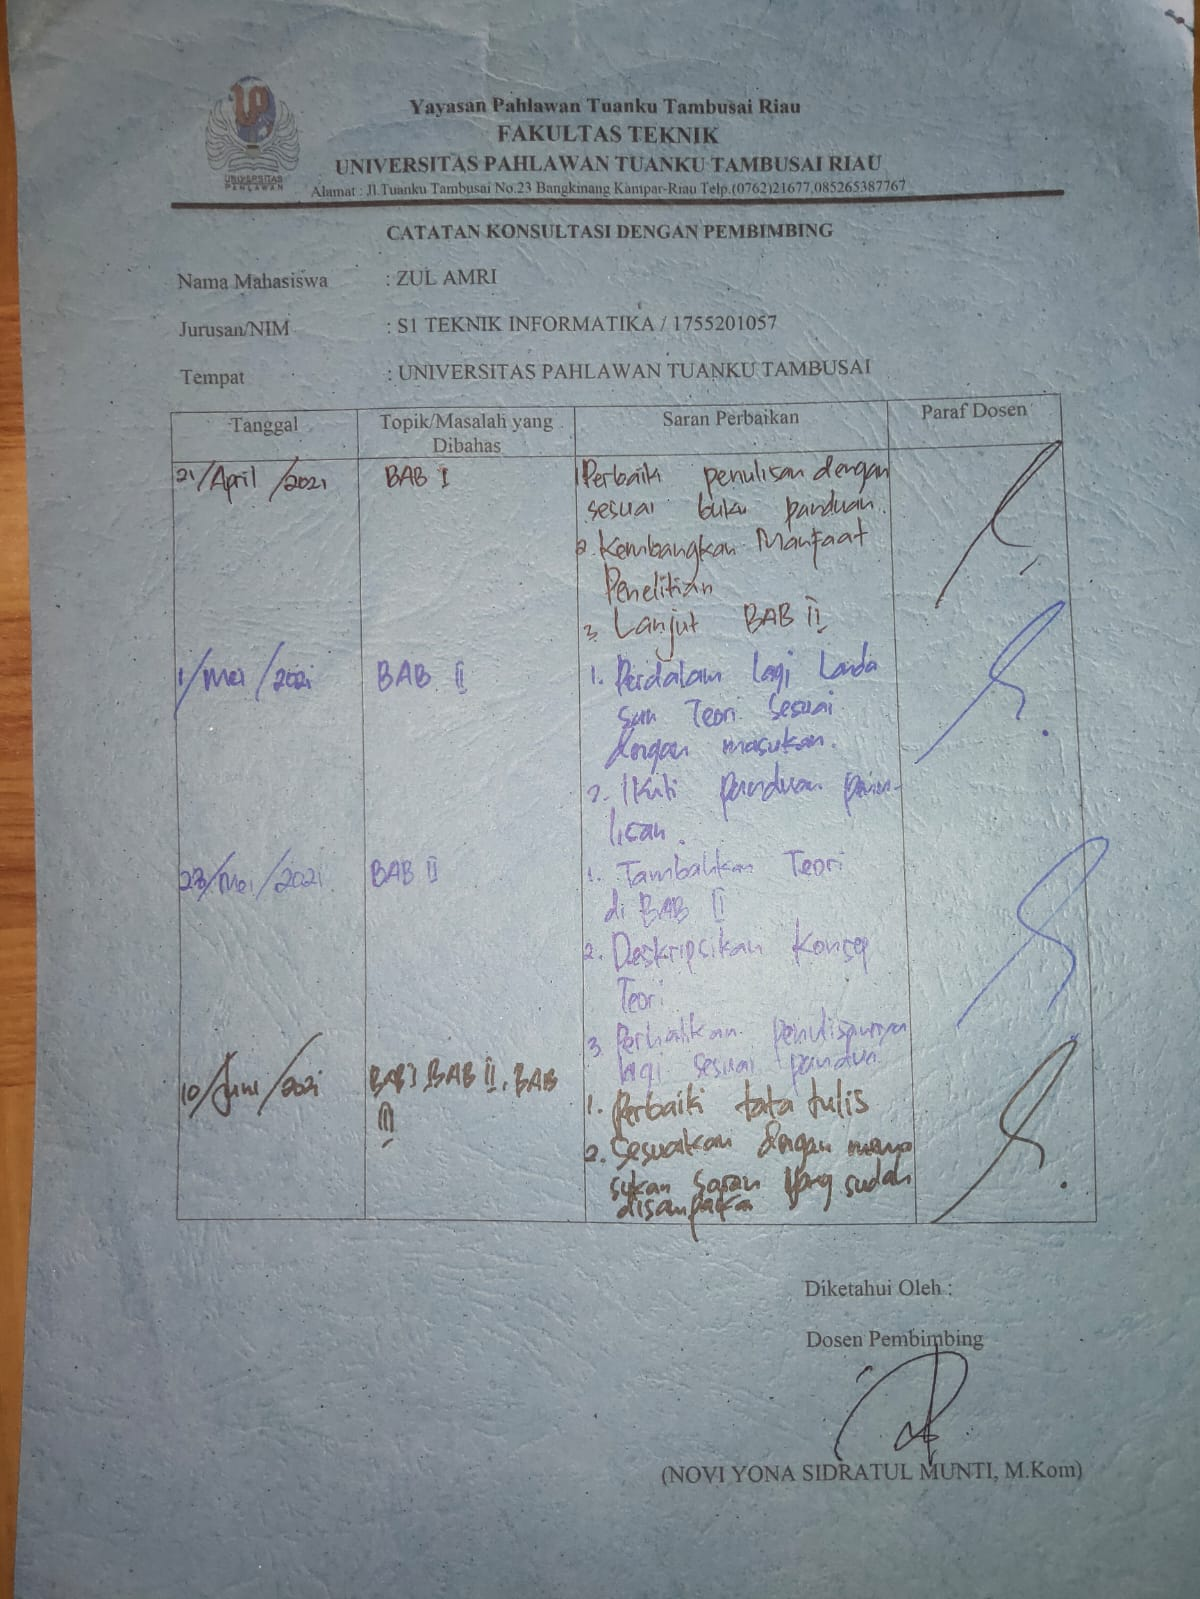 UNIVERSITAS
PAHLAWAN
Yayasan Pahlawan Tuanku Tambusai Riau
FAKULTAS TEKNIK
UNIVERSITAS PAHLAWAN TUANKU TAMBUSAI RIAU
Alamat : Jl.Tuanku Tambusai No.23 Bangkinang Kampar-Riau Telp.(0762)21677,085265387767
CATATAN KONSULTASI DENGAN PEMBIMBING
Nama Mahasiswa : ZUL AMRI
Jurusan/NIM : S1 TEKNIK INFORMATIKA / 1755201057
Tempat : UNIVERSITAS PAHLAWAN TUANKU TAMBUSAI
Tanggal
Topik/Masalah yang
Dibahas
Saran Perbaikan
Paraf Dosen
21/April/2021
BAB I
1 Perbaiki penulisan dengan
sesuai buku panduan.
2. Kembangkan Manfaat
Penelitian
3 Lanjut BAB II
1/Mei/2021
BAB II
1. Perdalam lagi Landa
san Teori sesuai
dengan masukan.
2. Ikuti panduan penu-
lisan.
23/Mei/2021
BAB II
1. Tambahkan Teori
di BAB II
2. Deskripsikan Konsep
Teori
3 Perhatikan penulisannya
lagi sesuai
10/Juni/2021
BAB I BAB II, BAB
III
1. Perbaiki tata tulis
2. Sesuaikan dengan
saran yang sudah
Diketahui Oleh :
Dosen Pembimbing
(NOVI YONA SIDRATUL MUNTI, M.Kom)